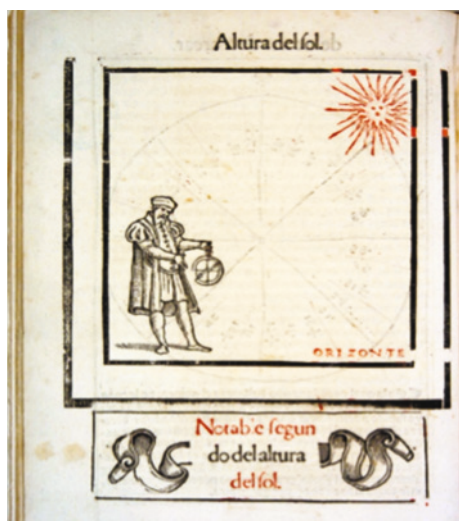 Altura del sol.
ORIZONTE
Notab e segun
do del altura
del sol.